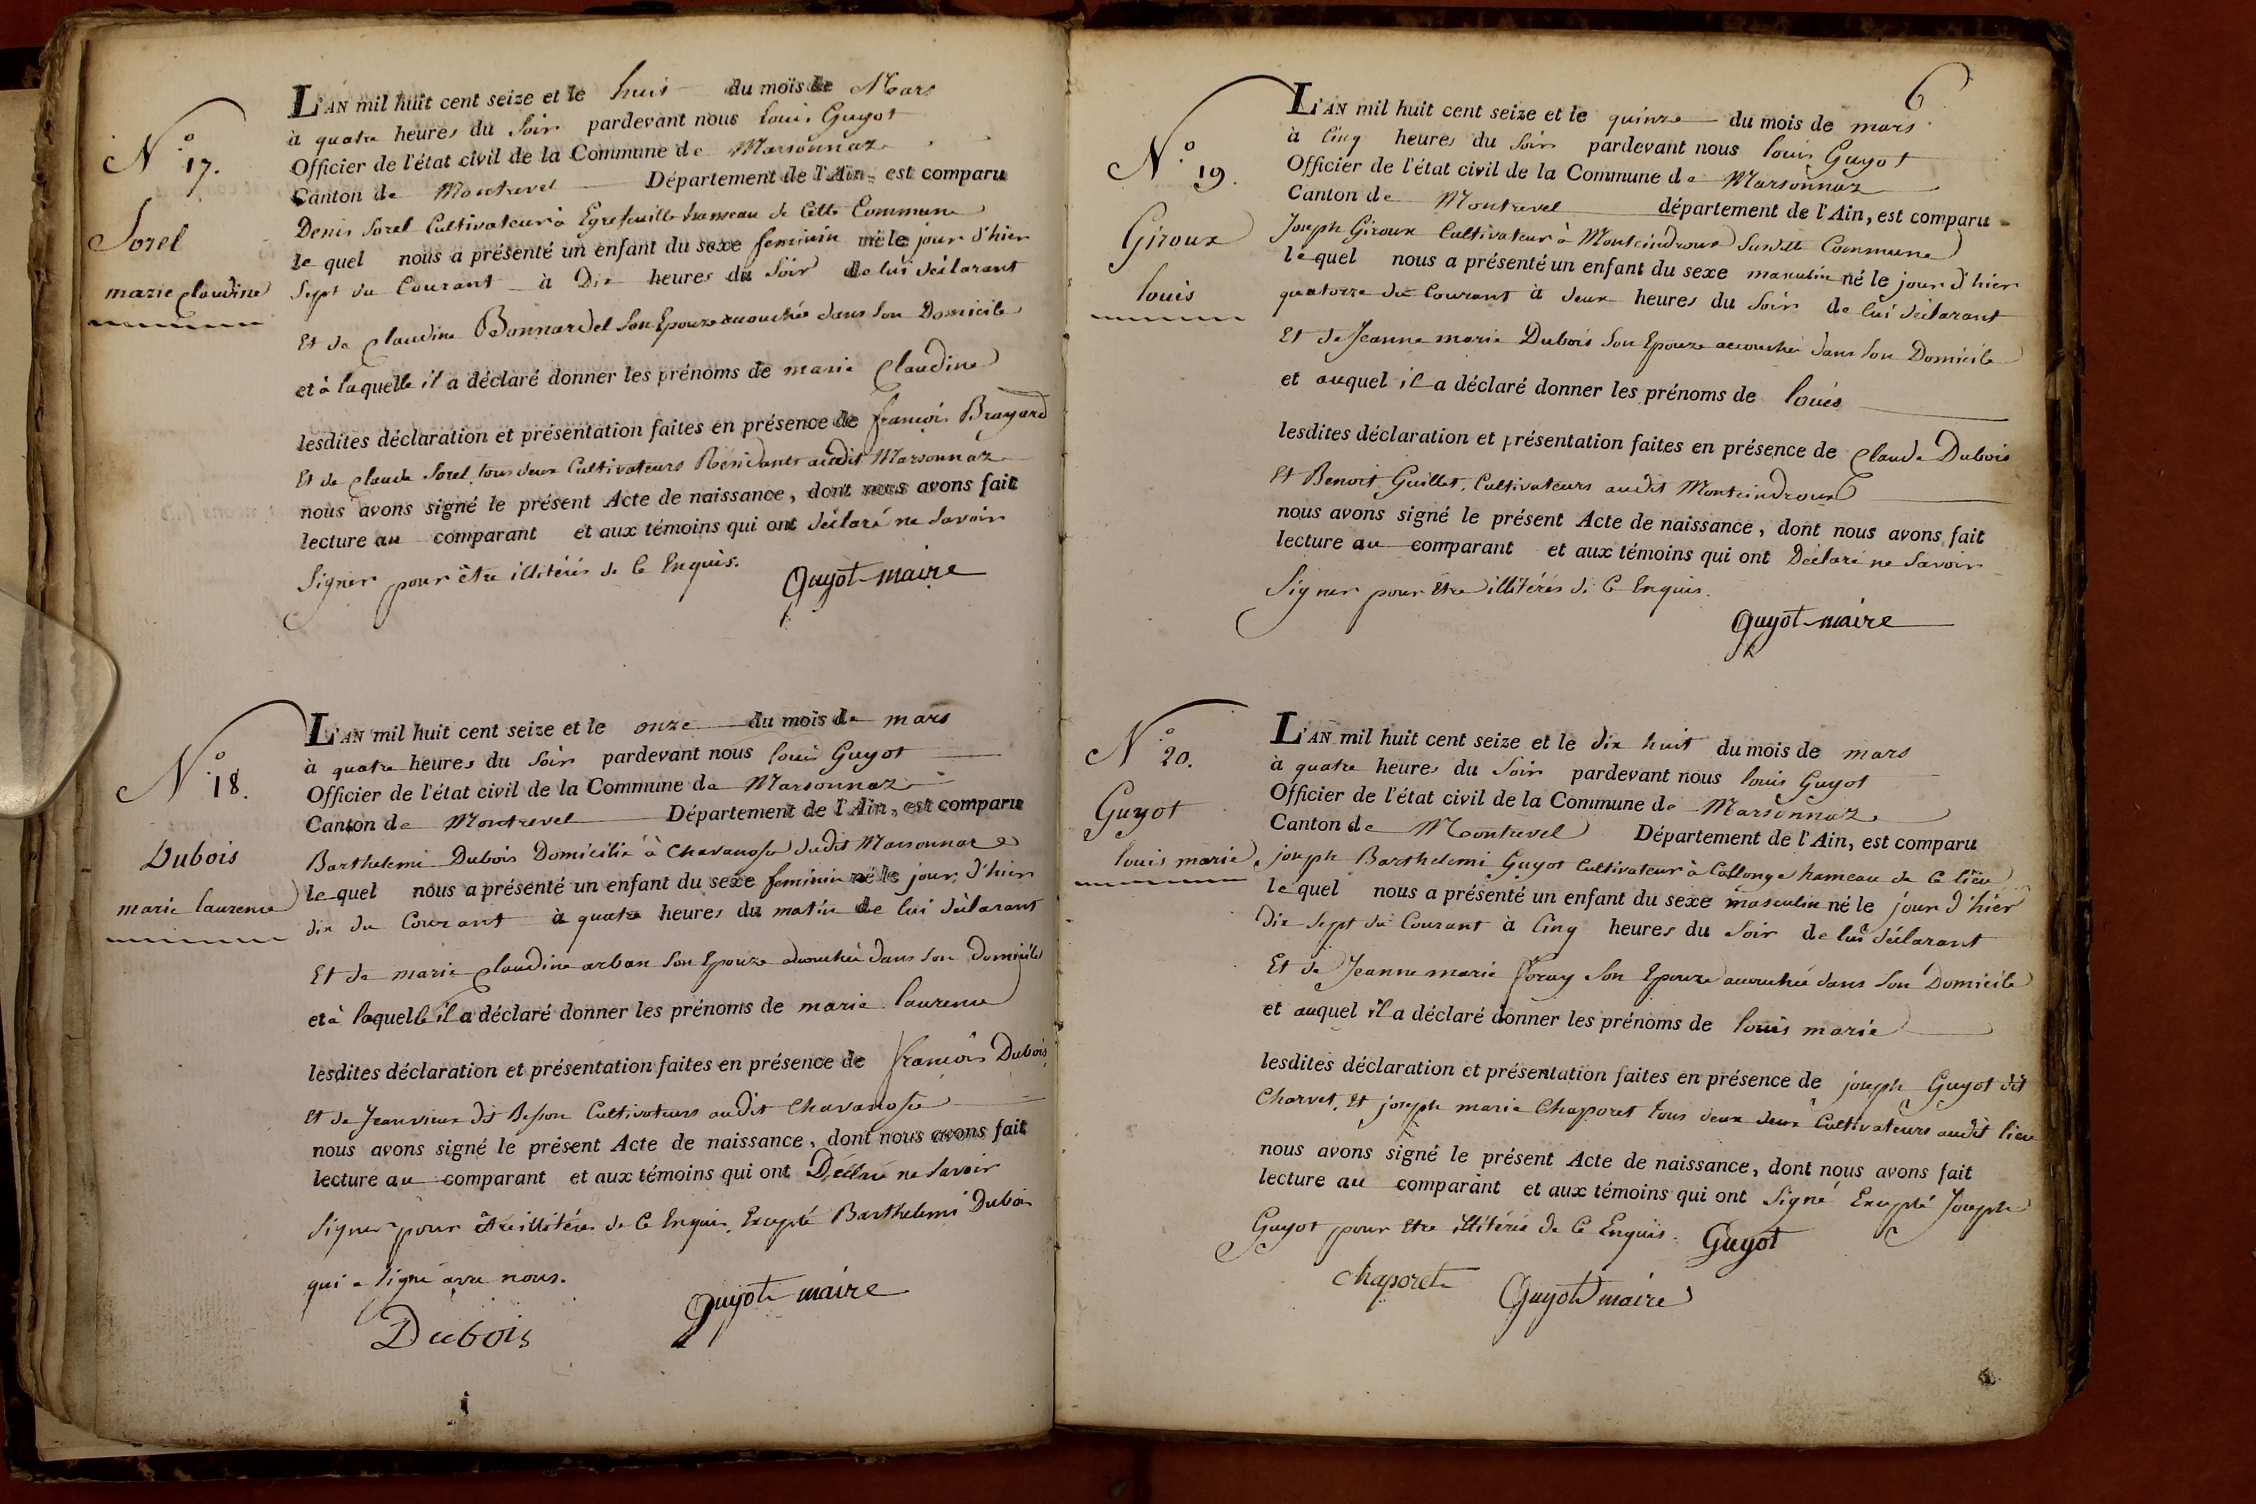 N.o 17.
Sorel
marie claudine
L'AN mil huit cent seize et le huit du mois de Mars
à quatre heures du soir pardevant nous louis Guyot
Officier de l'état civil de la Commune de Marsonnaz
Canton de Montrevel Département de l'Ain, est comparu
Denis Sorel Cultivateur à Egrefeuille hameau de Cette Commune
le quel nous a présenté un enfant du sexe feminin né le jour d'hier
sept du Courant à Dix heures du soir de lui déclarant
Et de claudine Bonnardel son Epouze accouchée dans son Domicile
et à laquelle il a déclaré donner les prénoms de marie Claudine
lesdites déclaration et présentation faites en présence de françois Brayard
Et de claude Sorel, tous deux Cultivateurs Residants audit Marsonnaz
nous avons signé le présent Acte de naissance, dont nous avons fait
lecture au comparant et aux témoins qui ont déclaré ne savoir
Signer pour être illitérés de Ce Enquis.
Guyot maire
N.o 18.
Dubois
marie laurence
L'AN mil huit cent seize et le onze du mois de mars
à quatre heures du soir pardevant nous louis Guyot
Officier de l'état civil de la Commune de Marsonnaz
Canton de Montrevel Département de l'Ain, est comparu
Barthelemi Dubois Domicilié à Chavanosse dudit Marsonnaz
le quel nous a présenté un enfant du sexe feminin né le jour d'hier
dix du Courant à quatre heures du matin de lui déclarant
Et de marie claudine arban son Epouze accouchée dans son Domicile
et à laquelle il a déclaré donner les prénoms de marie laurence
lesdites déclaration et présentation faites en présence de françois Dubois
Et de Jean vieux dit Besson Cultivateurs audit Chavanosse
nous avons signé le présent Acte de naissance, dont nous avons fait
lecture au comparant et aux témoins qui ont Déclaré ne savoir
Signer pour être illitérés de Ce Enquis, Excepté Barthelemi Dubois
qui a signé avec nous.
Dubois Guyot maire
6
N.o 19.
Giroux
louis
L'AN mil huit cent seize et le quinze du mois de mars
à Cinq heures du soir pardevant nous louis Guyot
Officier de l'état civil de la Commune de Marsonnaz
Canton de Montrevel département de l'Ain, est comparu
Joseph Giroux Cultivateur à Montcindroux Susditte Commune
le quel nous a présenté un enfant du sexe masculin né le jour d'hier
quatorze du Courant à deux heures du soir de lui déclarant
Et de Jeanne marie Dubois son Epouze accouchée dans son Domicile
et auquel il a déclaré donner les prénoms de louis
lesdites déclaration et présentation faites en présence de claude Dubois
Et Benoit Guillet, Cultivateurs audit Montcindroux
nous avons signé le présent Acte de naissance, dont nous avons fait
lecture au comparant et aux témoins qui ont Déclaré ne savoir
Signer pour être illitérés de Ce Enquis.
Guyot maire
N.o 20.
Guyot
louis marie
L'AN mil huit cent seize et le dix huit du mois de mars
à quatre heures du soir pardevant nous louis Guyot
Officier de l'état civil de la Commune de Marsonnaz
Canton de Montrevel Département de l'Ain, est comparu
joseph Barthelemi Guyot Cultivateur à Collonge hameau de Ce lieu
le quel nous a présenté un enfant du sexe masculin né le jour d'hier
Dix sept du Courant à Cinq heures du soir de lui déclarant
Et de Jeanne marie foray son Epouze accouchée dans son Domicile
et auquel il a déclaré donner les prénoms de louis marie
lesdites déclaration et présentation faites en présence de joseph Guyot dit
Charvet, Et joseph marie Chaporet tous deux deux Cultivateurs audit lieu
nous avons signé le présent Acte de naissance, dont nous avons fait
lecture au comparant et aux témoins qui ont Signé Excepté Joseph
Guyot pour être illitéré de Ce Enquis. Guyot
Chaporet Guyot maire